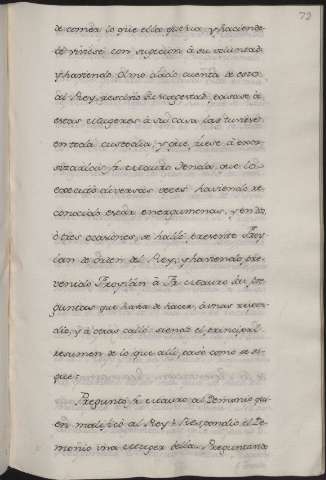 79
de comer lo que ella queria y haciendo
le viviese con sugecion à su voluntad
y haviendo Olmo dado cuenta de esto,
al Rey, resolvio Su Magestad, pasase à
estas Mugeres à su Casa las tuviese
en toda custodia, y que, fuese à exor-
sizarlas Fr. Mauro Tenda, que lo
executò diversas veces haviendo re
conocido estàr energumenas, y en dos,
ò tres ocasiones, se hallò presente Froy
lan de orden del Rey, y haviendo pre
venido Froylàn à Fr. Mauro las pre
guntas que havia de hacer, à unas respon
dio, y à otras callò: siendo el principal
resumen de lo que alli, pasò como se si-
gue:
Preguntò Fr. Mauro al Demonio qui
en maleficò al Rey? Respondio el De
monio una Muger bella. Preguntando